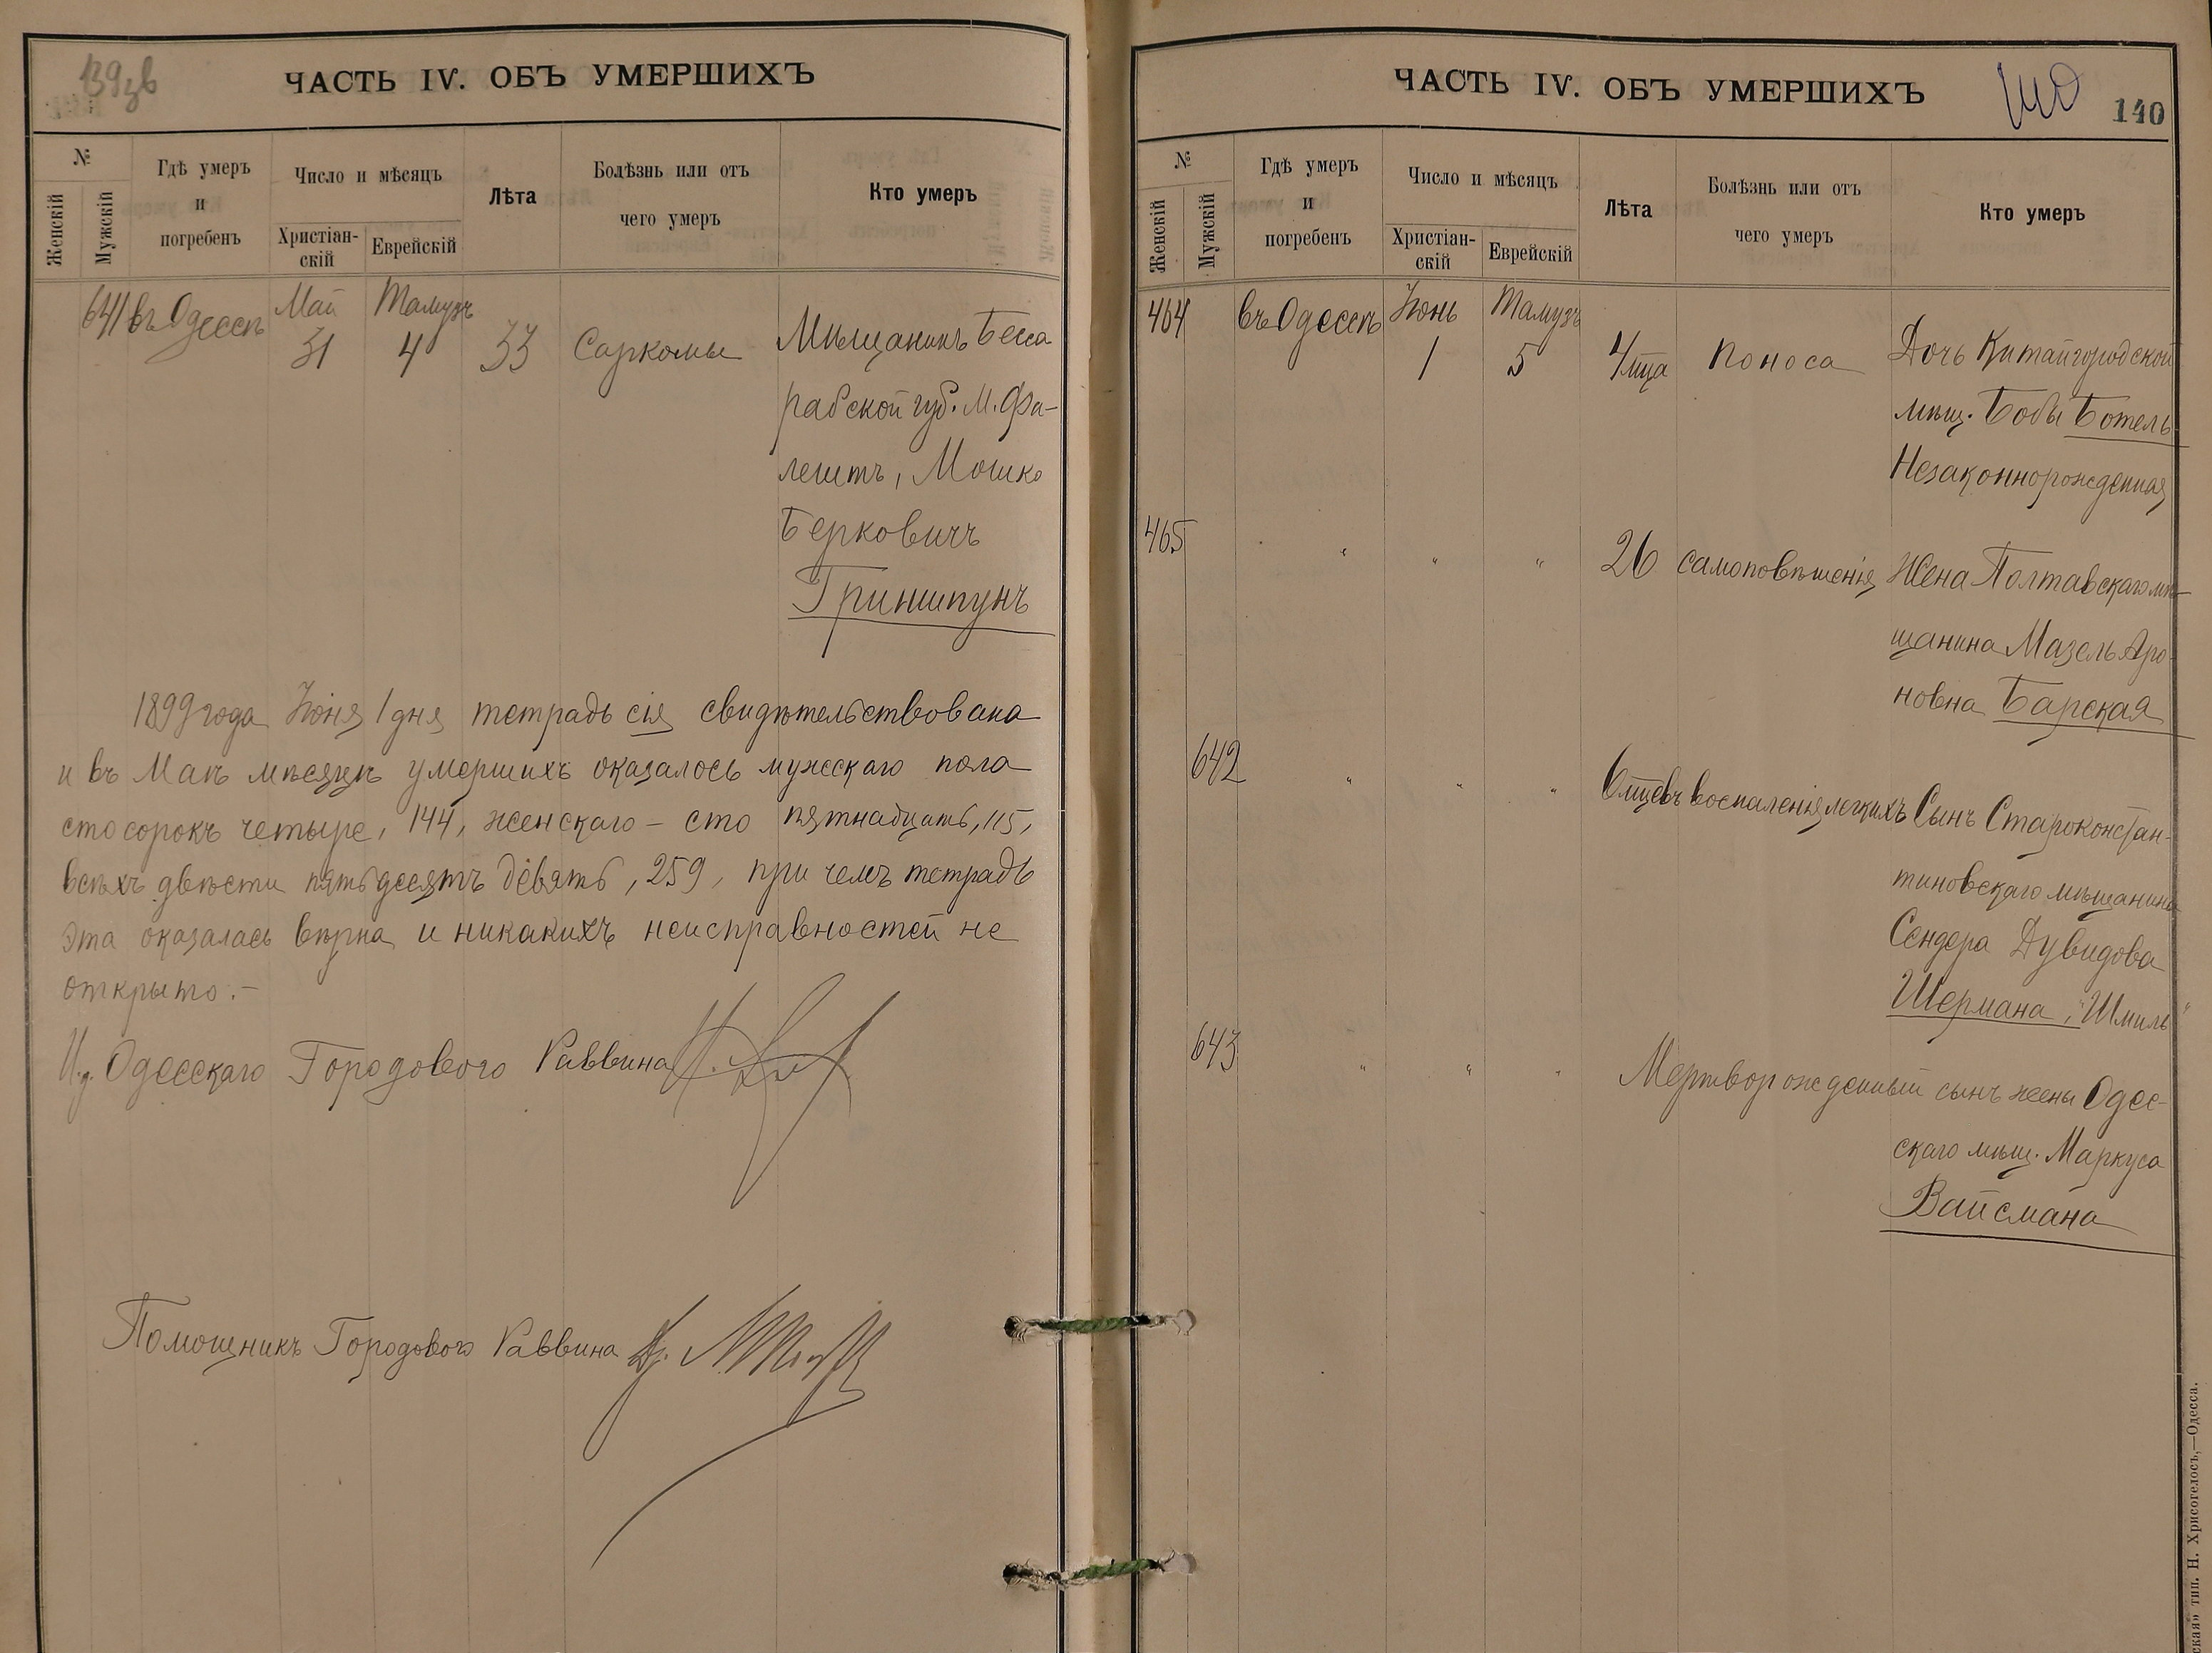 139зв
ЧАСТЬ IV. ОБЪ УМЕРШИХЪ
№
Женскій
Мужскій
Гдѣ умеръ
и
погребенъ
Число и мѣсяцъ
Христіан-
скій
Еврейскій
Лѣта
Болѣзнь или отъ
чего умеръ
Кто умеръ
641 въ Одессѣ Май Тамузъ
31 4 33 Саркомы Мѣщанинъ Бесса
рабской губ. М. Фа-
лештъ, Мошко
Берковичъ
Гриншпунъ
1899 года Іюня 1 дня тетрадь сія свидѣтельствована
и въ Маѣ мѣсяцѣ умершихъ оказалось мужескаго пола
сто сорокъ четыре, 144, женскаго – сто пятнадцать, 115,
всѣхъ двѣсти пятьдесятъ девять, 259, при чемъ тетрадь
эта оказалась вѣрна и никакихъ неисправностей не
открыто. –
И.д. Одесскаго Городового Раввина
Помощникъ Городового Раввина
ЧАСТЬ IV. ОБЪ УМЕРШИХЪ
140
140
№
Женскій
Мужскій
Гдѣ умеръ
и
погребенъ
Число и мѣсяцъ
Христіан-
скій
Еврейскій
Лѣта
Болѣзнь или отъ
чего умеръ
Кто умеръ
464 въ Одессѣ Іюнь Тамузъ
1 5 4 мца Поноса Дочь Китайгородской
мѣщ. Бобы Ботель
Незаконнорожденная
465 " " " 26 самоповѣшенія Жена Полтавскаго мѣ-
щанина Мазель Аро-
новна Барская
642 " " " 6 мцевъ воспаленія легкихъ Сынъ Староконстан-
тиновскаго мѣщанина
Сендера Дувидова
Шермана, "Шмиль"
643 " " " Мертворожденный сынъ жены Одес-
скаго мѣщ. Маркуса
Вайсмана
ская» тип. Н. Хрисогелосъ,—Одесса.